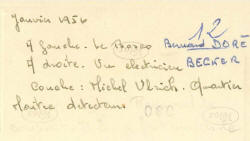 Janvier 1956
12
A gauche. Le Bosco Bernard DORÉ
A droite. Un electricien BECKER
Couché : Michel Ulrich. Quartier
Maître detecteur